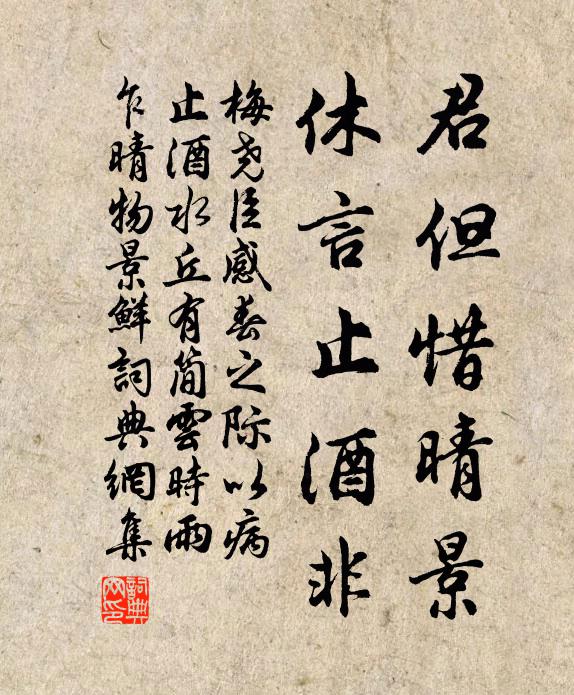 君但惜晴景
休言止酒非
梅尧臣感春之际以病
止酒水丘有简雲時雨
乍晴物景鮮詞典網集
詞典网印